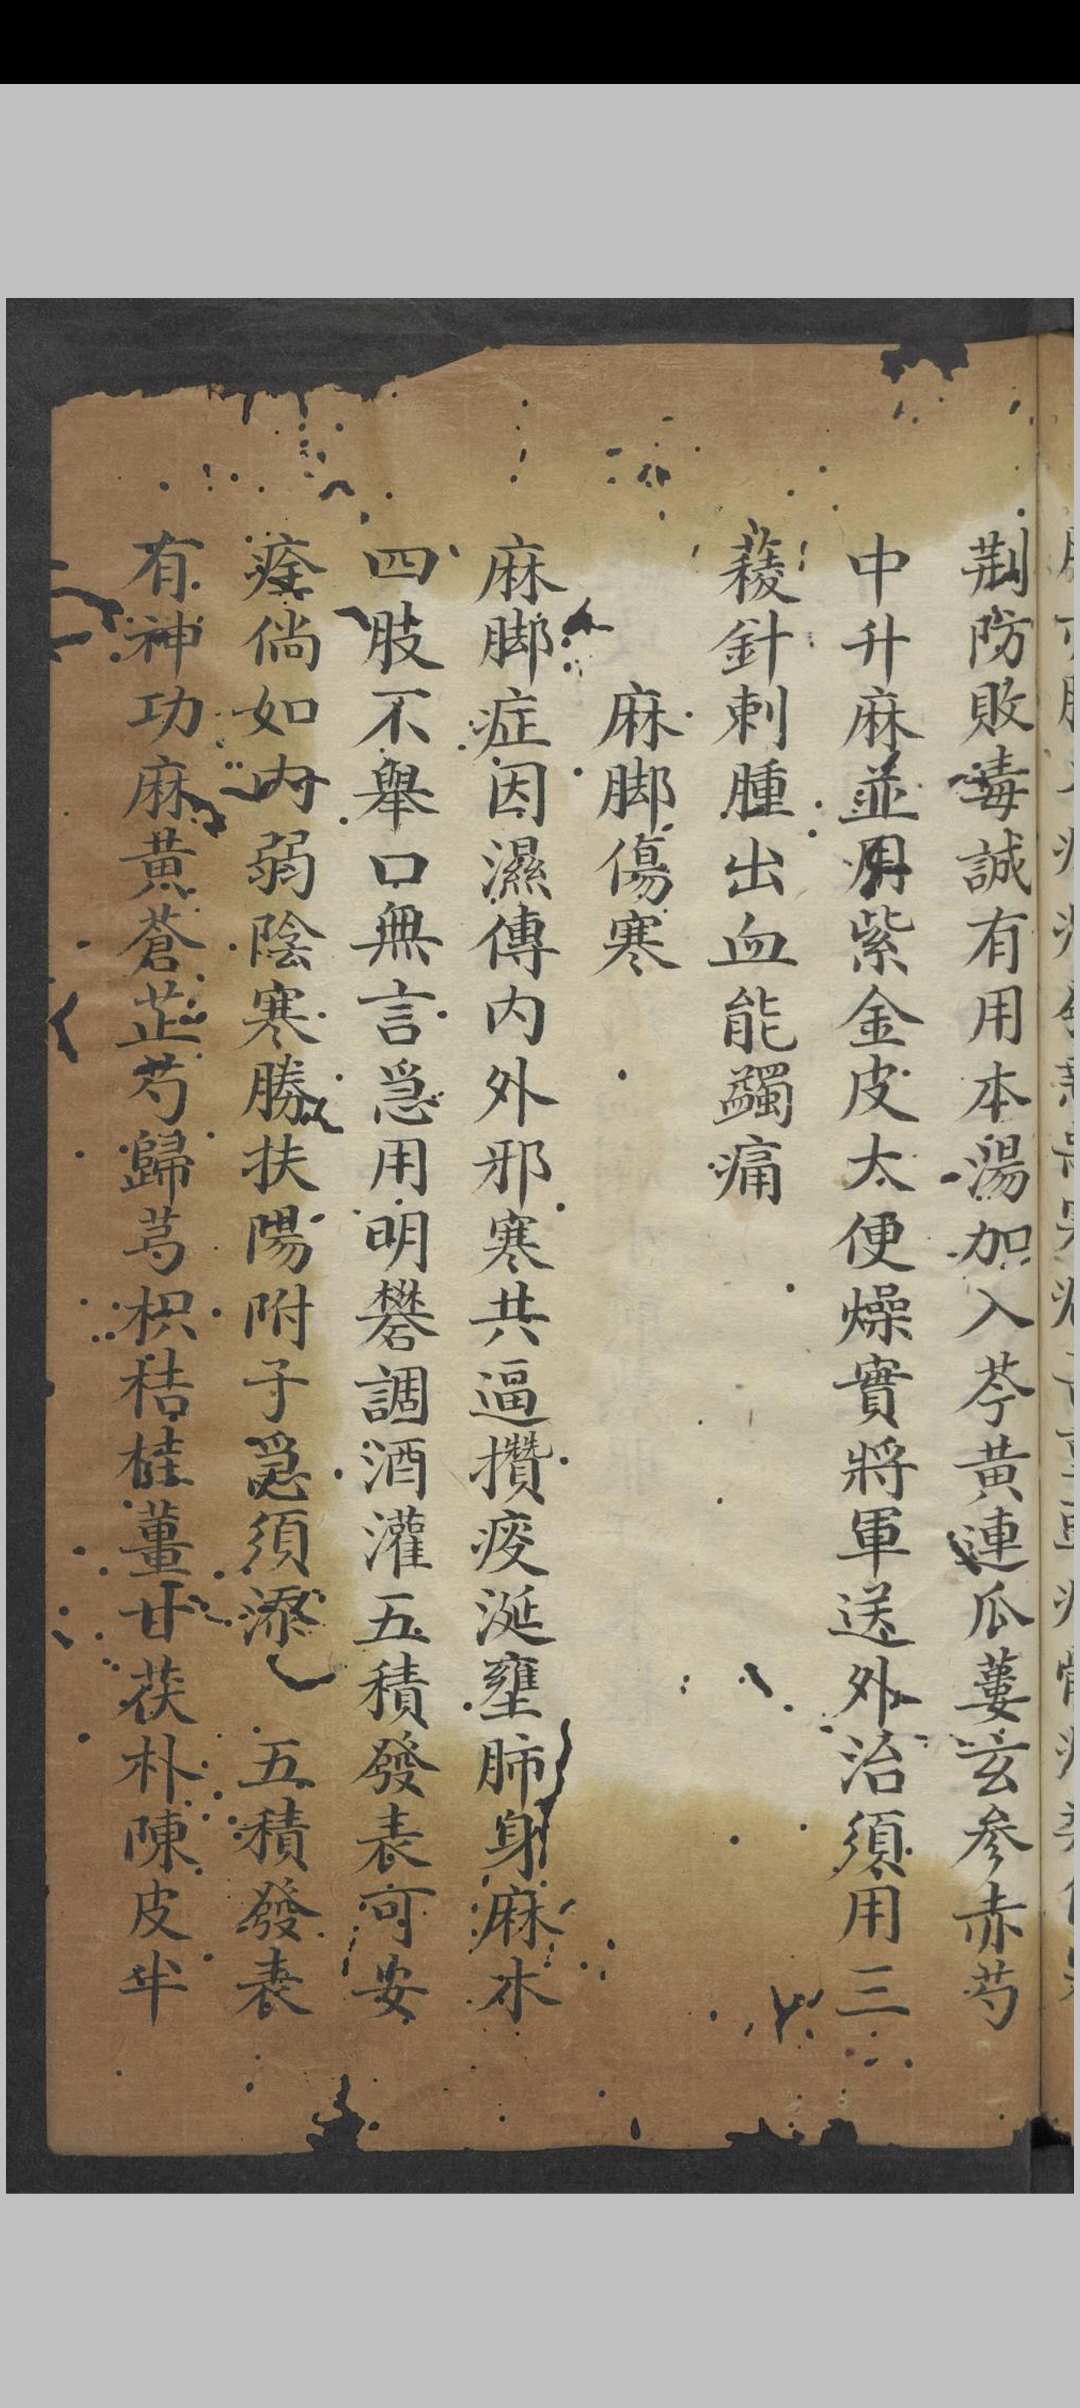 荆防敗毒誠有用本湯加入芩黃連瓜蔞玄參赤芍
中升麻並用紫金皮大便燥實將軍送外治須用三
稜針刺腫出血能蠲痛
麻脚傷寒
麻脚症因濕傳內外邪寒共逼攢痰涎壅肺身麻木
四肢不舉口無言急用明礬調酒灌五積發表可安
痊倘如內弱陰寒勝扶陽附子急須添 五積發表
有神功麻黃蒼芷芍歸芎枳桔桂薑甘茯朴陳皮半